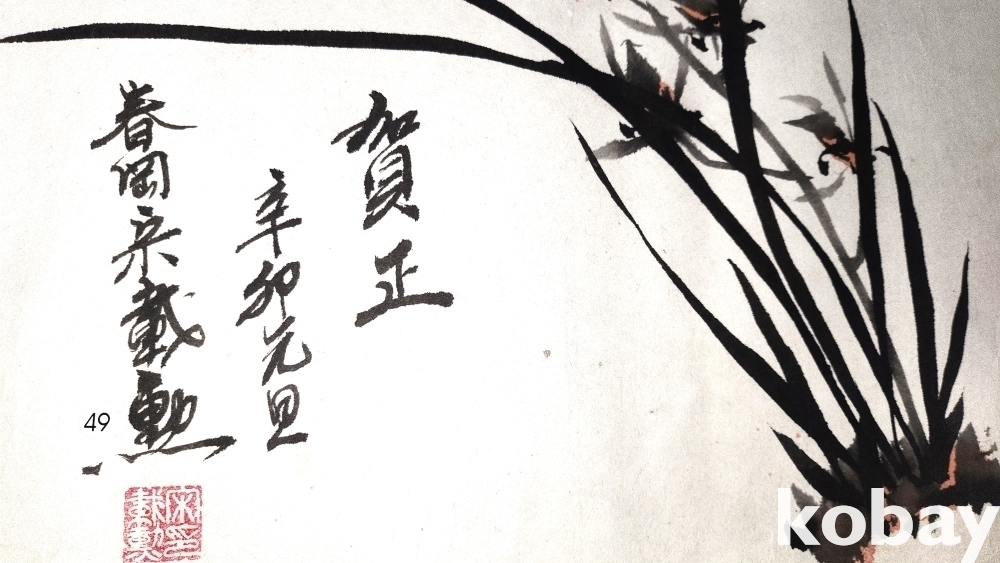 賀正
辛卯元旦
春岡宋載勳
49
宋印
載勳
kobay